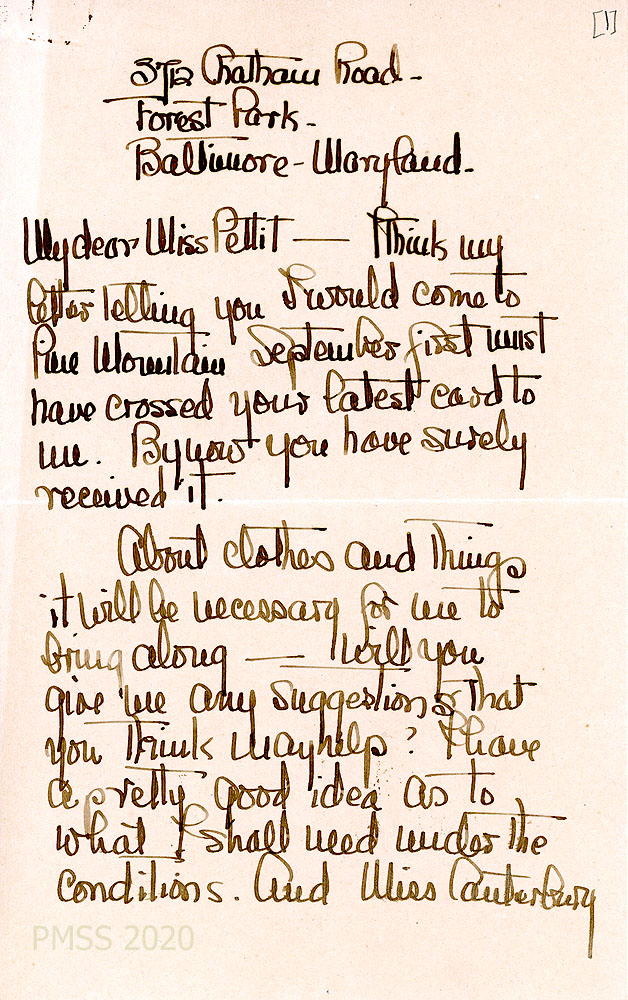 [1]
3712 Chatham Road -
Forest Park -
Baltimore - Maryland -
My dear Miss Pettit — I think my
letter telling you I would come to
Pine Mountain September first must
have crossed your latest card to
me. By now you have surely
received it.
About clothes and things
it will be necessary for me to
bring along — will you
give me any suggestions that
you think may help? I have
a pretty good idea as to
what I shall need under the
conditions. And Miss Canterbury
PMSS 2020